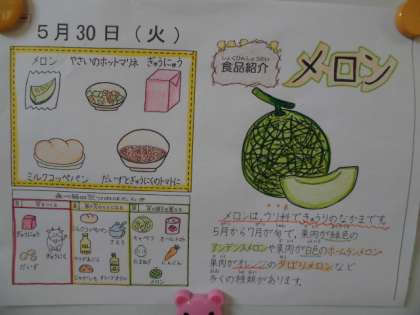 5月30日(火)
メロン やさいのホットマリネ ぎゅうにゅう
ミルクコッペパン だいずとぎゅうにくのトマトに
しょくひんしょうかい
食品紹介
メロン
メロンは、ウリ科できゅうりのなかまです。
5月から7月が旬で、果肉が緑色の
アンデスメロンや果肉が白色のホームランメロン
果肉がオレンジの夕ばりメロンなど
多くの種類があります。
ぎゅうにゅう
ぎゅうにく
だいず
ミルクコッペパン
さとう
じゃがいも
キャベツ
ホールトマト
たまねぎ
にんじん
メロン